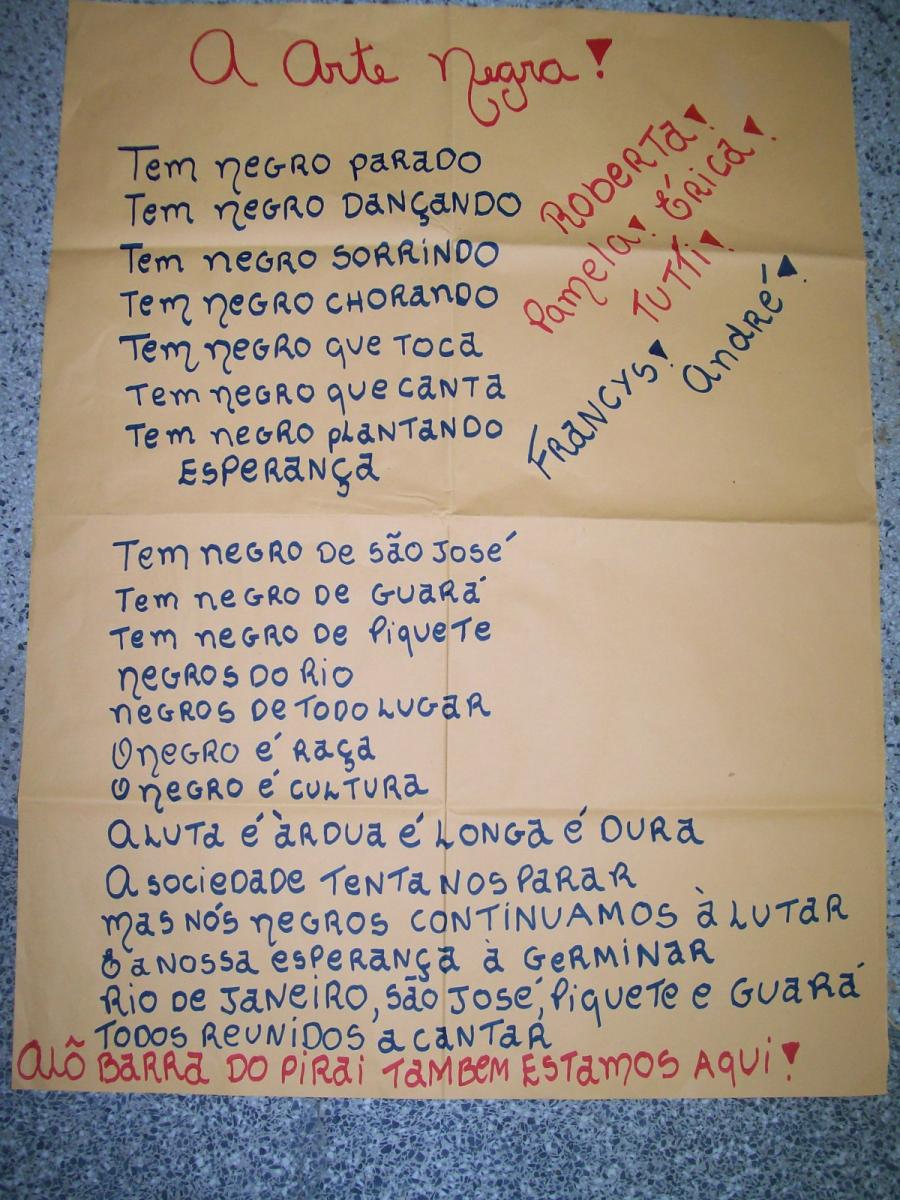 A Arte Negra!
Tem negro parado
Tem negro dançando
Tem negro sorrindo
Tem negro chorando
Tem negro que toca
Tem negro que canta
Tem negro plantando
esperança
Roberta!
Pamela! Érica!
Tutti!
Francys! André!
Tem negro de são José
Tem negro de Guará
Tem negro de Piquete
negros do Rio
negros de todo lugar
O negro é raça
O negro é cultura
A luta é àrdua é longa é dura
A sociedade tenta nos parar
mas nós negros continuamos à lutar
è a nossa esperança à germinar
Rio de Janeiro, são José, Piquete e Guará
Todos reunidos a cantar
Alô Barra do Pirai tambem estamos aqui!